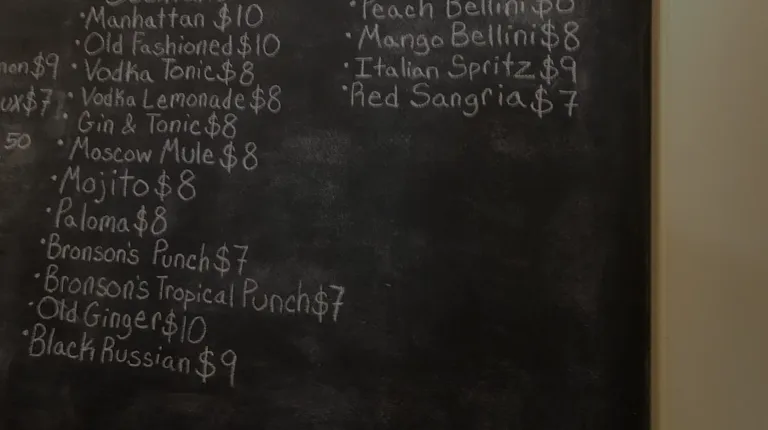 ·Manhattan $10
·Old Fashioned $10
·Vodka Tonic $8
·Vodka Lemonade $8
·Gin & Tonic $8
·Moscow Mule $8
·Mojito $8
·Paloma $8
·Bronson's Punch $7
·Bronson's Tropical Punch $7
·Old Ginger $10
·Black Russian $9
$9
$7
50
·Peach Bellini $8
·Mango Bellini $8
·Italian Spritz $9
·Red Sangria $7